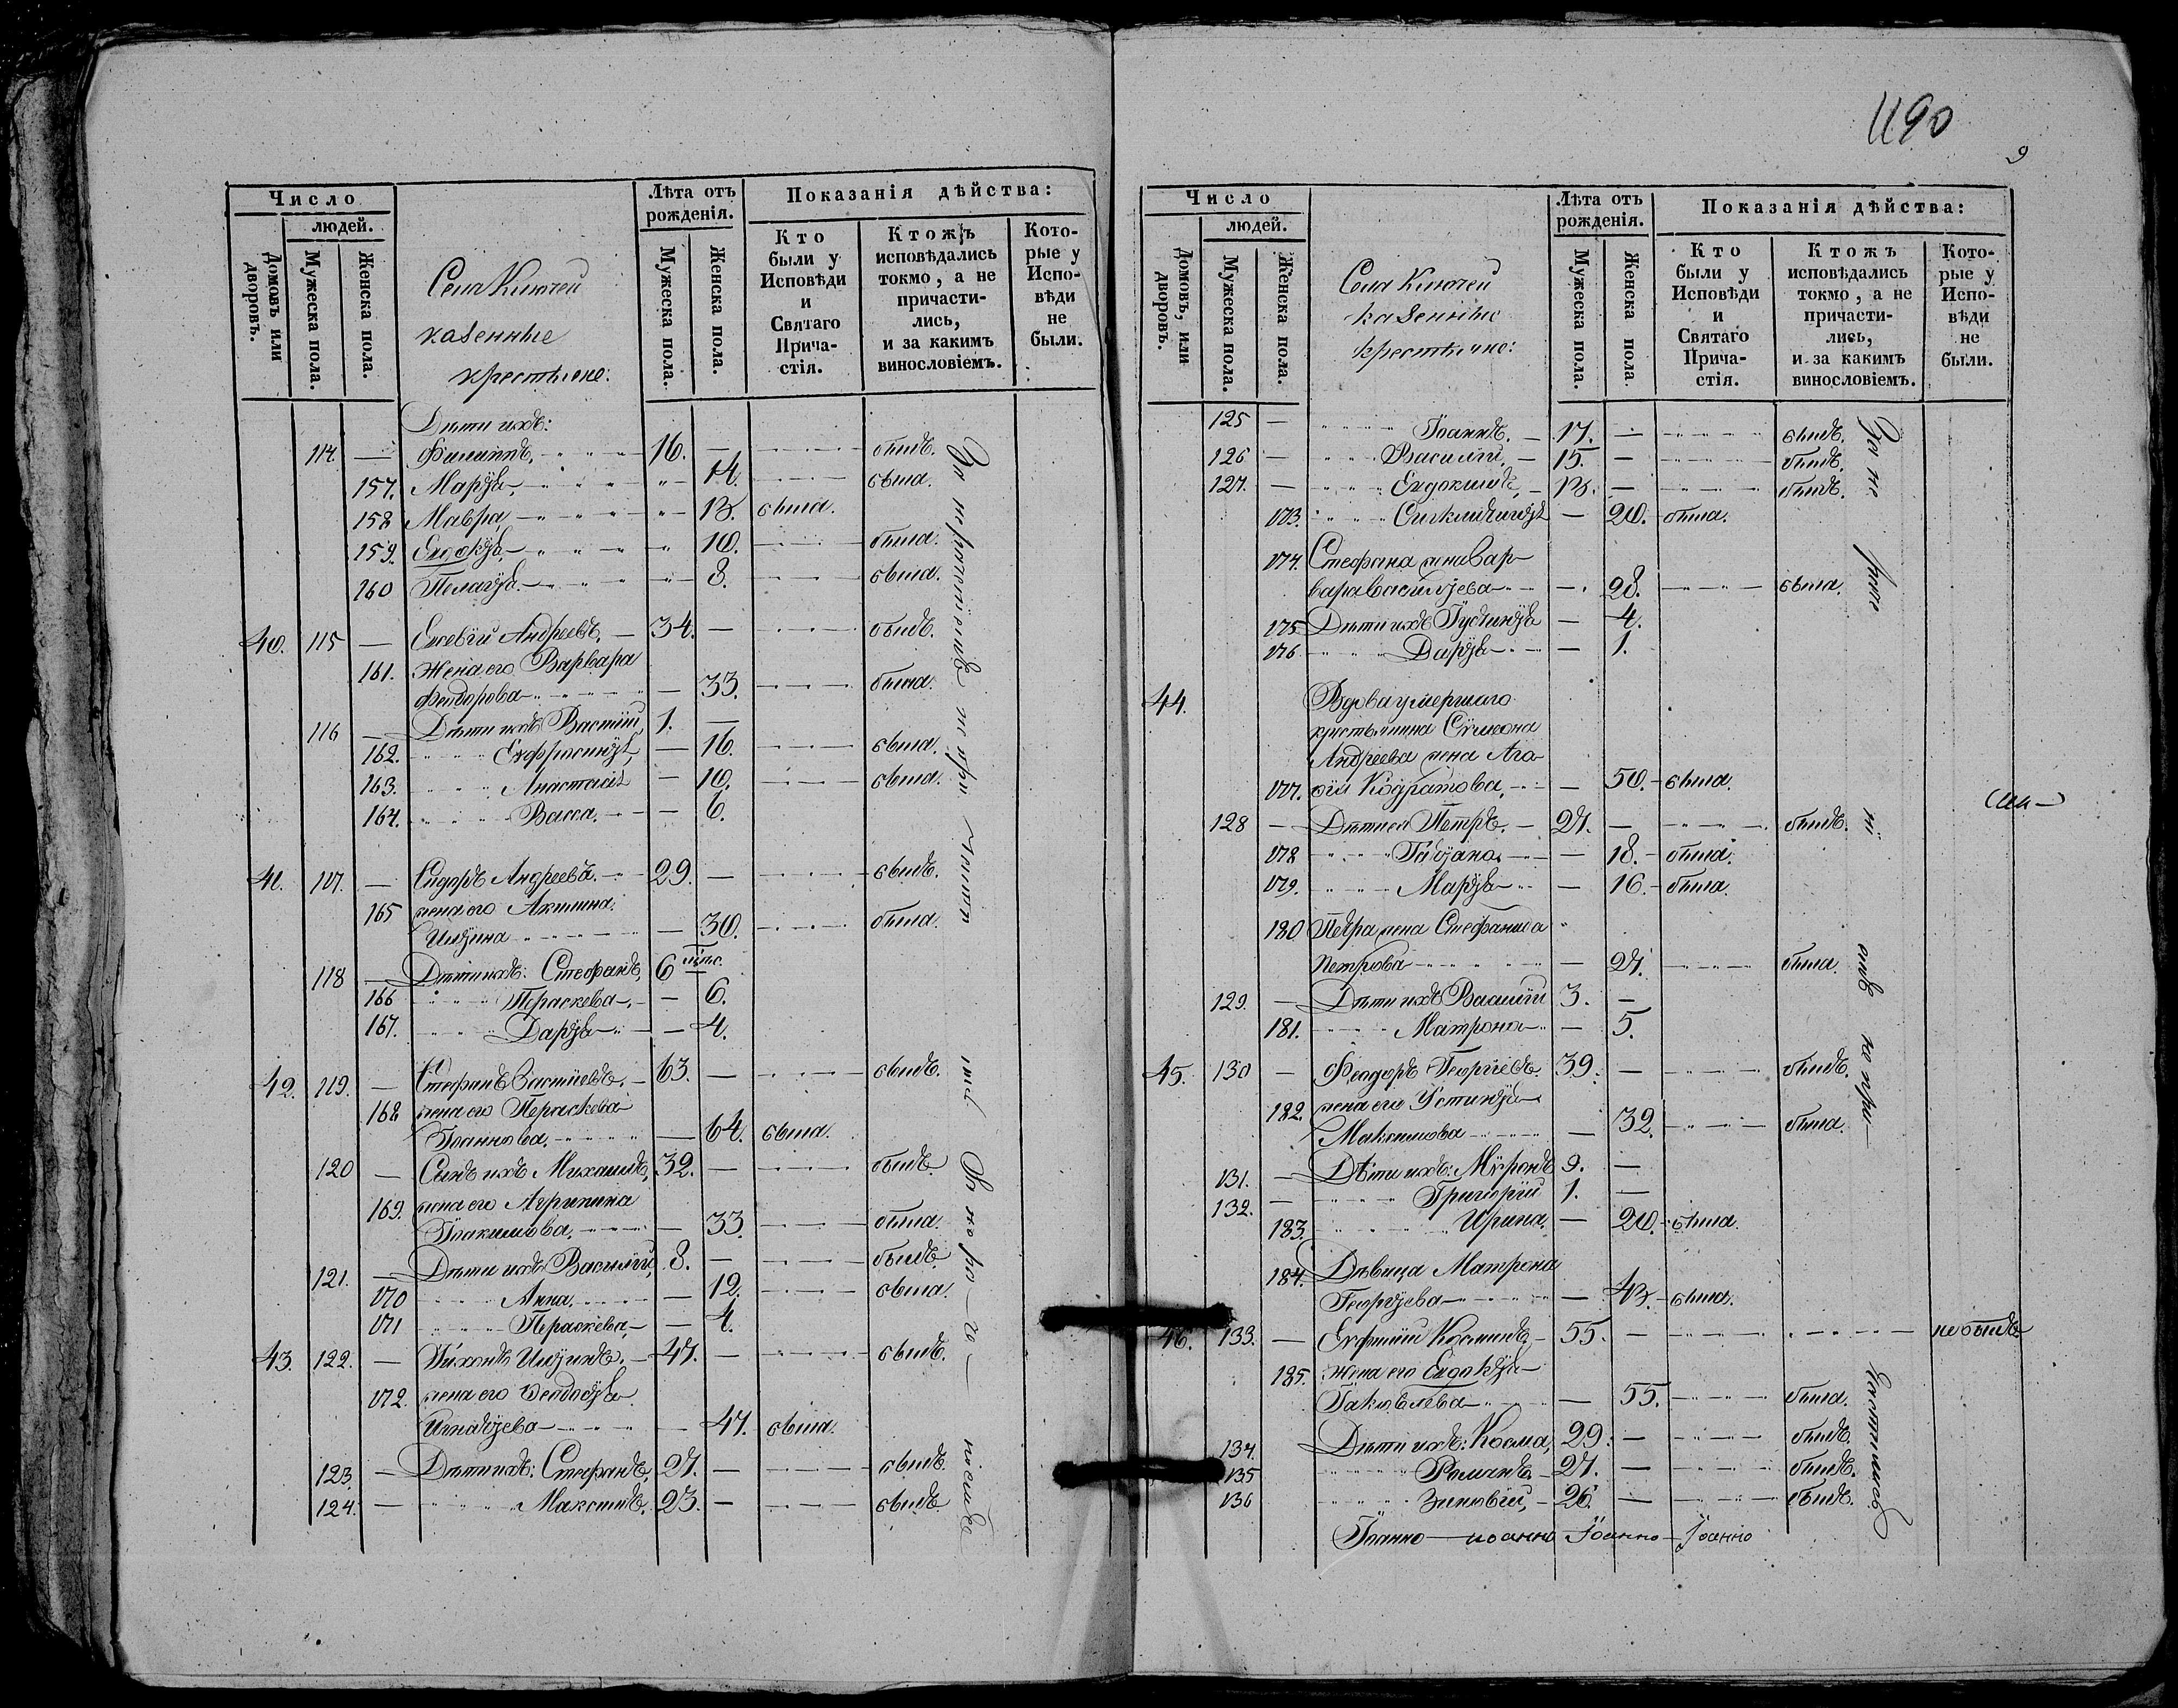 Число
людей.
Домовъ или дворовъ.
Мужеска пола.
Женска пола.
Села Ключей
казенные
крестьяне:
Лѣта отъ рожденія.
Мужеска пола.
Женска пола.
Показанія дѣйства:
Кто были у Исповѣди и Святаго Прича-стія.
Ктожъ исповѣдались токмо, а не причасти-лись, и за какимъ винословіемъ.
Кото-рые у Испо-вѣди не были.
Дѣти ихъ:
114. — Филиппъ, 16. — былъ.
157. Марія, 14. была.
158 Мавра, 13. была.
159. Евдокія, 10. была.
160 Пелагія 8. была.
40. 115 — Евсевій Андреевъ, 34. — былъ.
161. Жена его Варвара
Феодорова — 33. была.
116 — Дѣти ихъ Василій 1. —
162. Евфросинія, — 16. была.
163. Анастасія — 10. была.
164. Васса. — 6.
41. 117. — Сидоръ Андреевъ. 29. — былъ.
165 жена его Акилина
Иліина — 30. была.
118 — Дѣти ихъ: Стефанъ, 6
166 Параскева — 6.
167. Дарія — 4.
42. 119. — Стефанъ 63. — былъ.
168 жена его Параскева
Іоаннова. — 64. была.
120 — Сынъ ихъ Михаилъ, 32. — былъ
169. жена его Агрипина
Іоакимова. — 33. была.
121. — Дѣти ихъ Василій, 8. — былъ
170 Анна. — 12. была.
171 Параскева, — 4.
43. 122. — Тихонъ Иліинъ. 47. — былъ.
172. жена его Феодосія
Игнатіева — 47. была.
123 — Дѣти ихъ: Стефанъ, 27. — былъ
124. — Максимъ. 23. — былъ
1190
9
Число
людей.
Домовъ, или дворовъ.
Мужеска пола.
Женска пола.
Села Ключей
казенные
крестьяне:
Лѣта отъ рожденія.
Мужеска пола.
Женска пола
Показанія дѣйства:
Кто были у Исповѣди и Святаго Прича-стія.
Ктожъ исповѣдались токмо, а не причасти-лись, и за какимъ винословіемъ.
Кото-рые у Испо-вѣди не были.
125 — Іоаннъ. — 17. — былъ.
126 — Василій, — 15. — былъ.
127. — Евдокимъ, — 13. — былъ.
173. — 20. была.
174. Стефана жена Вар-
вара Василіева — 28. была.
175 Дѣти ихъ Іустинія — 4.
176 Дарія — 1.
44. Вдова умершаго
крестьянина Сѵмеона
Андреева жена Ага-
177. Кодратова, — 50. была.
128 — Дѣти ея Петръ. — 27. — былъ.
178 Татіана — 18. была.
179. Марія — 16. была.
180 Петра жена Стефанида
Петрова — 27. была.
129. — Дѣти ихъ Василій 3. —
181. Матрона — 5.
45. 130 — Феодоръ Георгіевъ. 39. — былъ.
182. жена его Устинія
Максимова — 32. была.
131. — Дѣти ихъ: Мѵронъ 9. —
132. — Григорій 1. —
183. Ирина. — 20. была.
184. Дѣвица Матрона
Георгіева — 43. была.
46. 133. — Евфимій Косминъ 55. — не былъ
185. Жена его Евдокія
Іаковлева — 55. была.
134. Дѣти ихъ: Косма, 29. — былъ.
135 Романъ. 27. — былъ.
136 Зиновій, 26. — былъ.
Іоанно — иоанно Іоанно — Іоанно